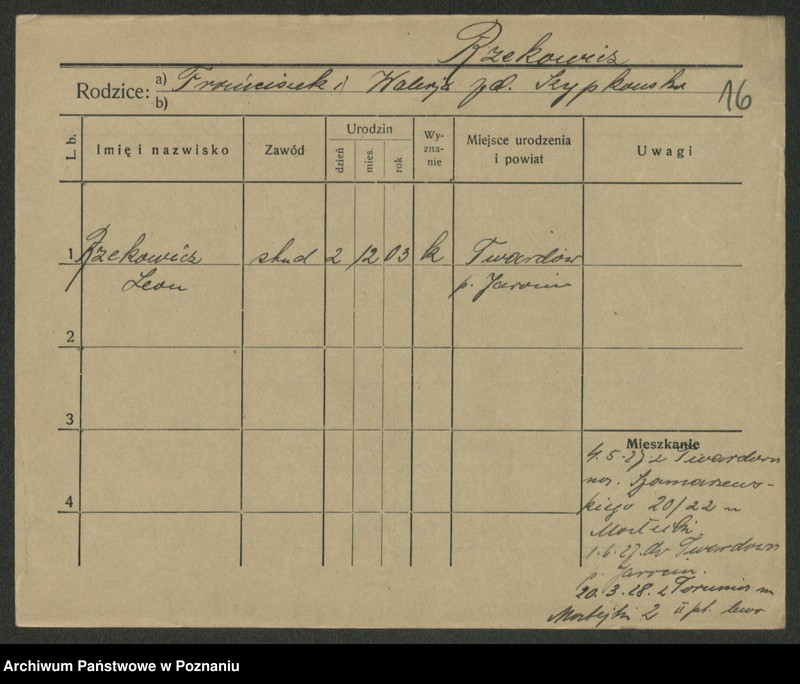 Rzekowicz
Rodzice: a) Franciszek i Walerja zd. Szypkowska
b)
16
L. b.
Imię i nazwisko
Zawód
Urodzin
dzień
mies.
rok
Wy-
zna-
nie
Miejsce urodzenia
i powiat
Uwagi
1 Rzekowicz stud 2 12 03 k Twardów
Leon p. Jarocin
2
3
4
Mieszkanie
4.5.27 z Twardowa
Szamarzews-
kiego 20/22 u
1.6.27. do Twardowa
p. Jarocin.
20.3.28. z Torunia
2 II pt. lewo
Archiwum Państwowe w Poznaniu